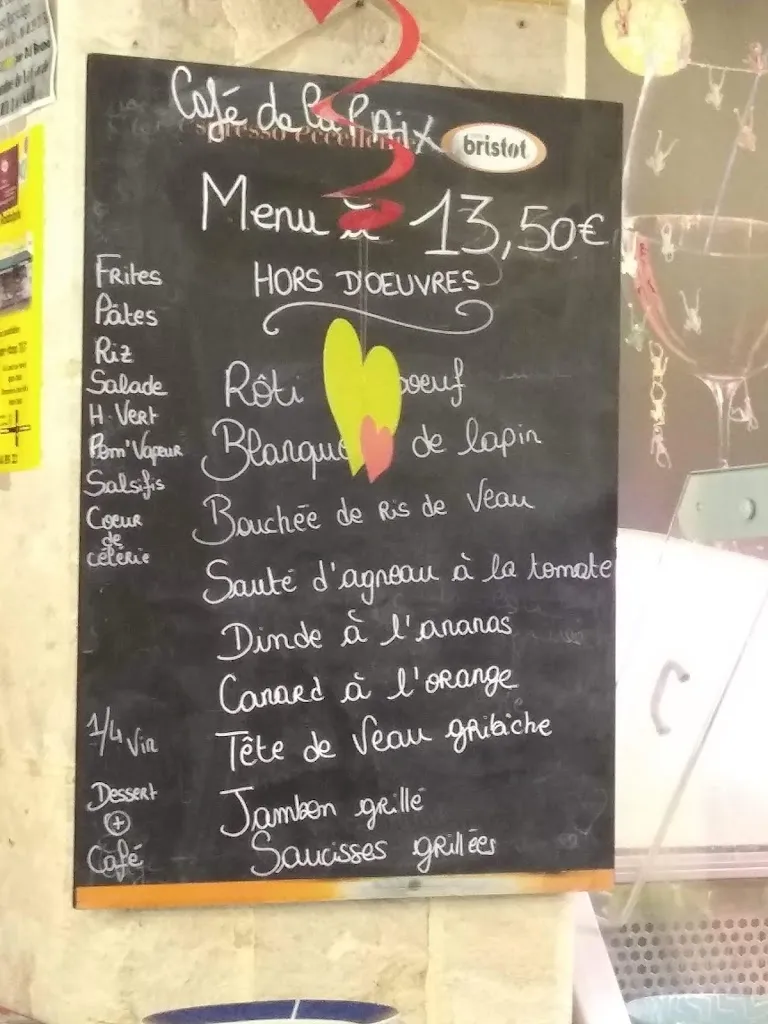 Café de la Paix
espresso eccellen
bristot
Menu à 13,50€
HORS D'OEUVRES
Frites
Pâtes
Riz
Salade
H. Vert
Pom' Vapeur
Salsifis
Coeur
de
célérie
Rôti boeuf
Blanque de lapin
Bouchée de Ris de Veau
Sauté d'agneau à la tomate
Dinde à l'ananas
Canard à l'orange
Tête de Veau gribiche
Jambon grillé
Saucisses grillées
1/4 Vin
Dessert
+
Café